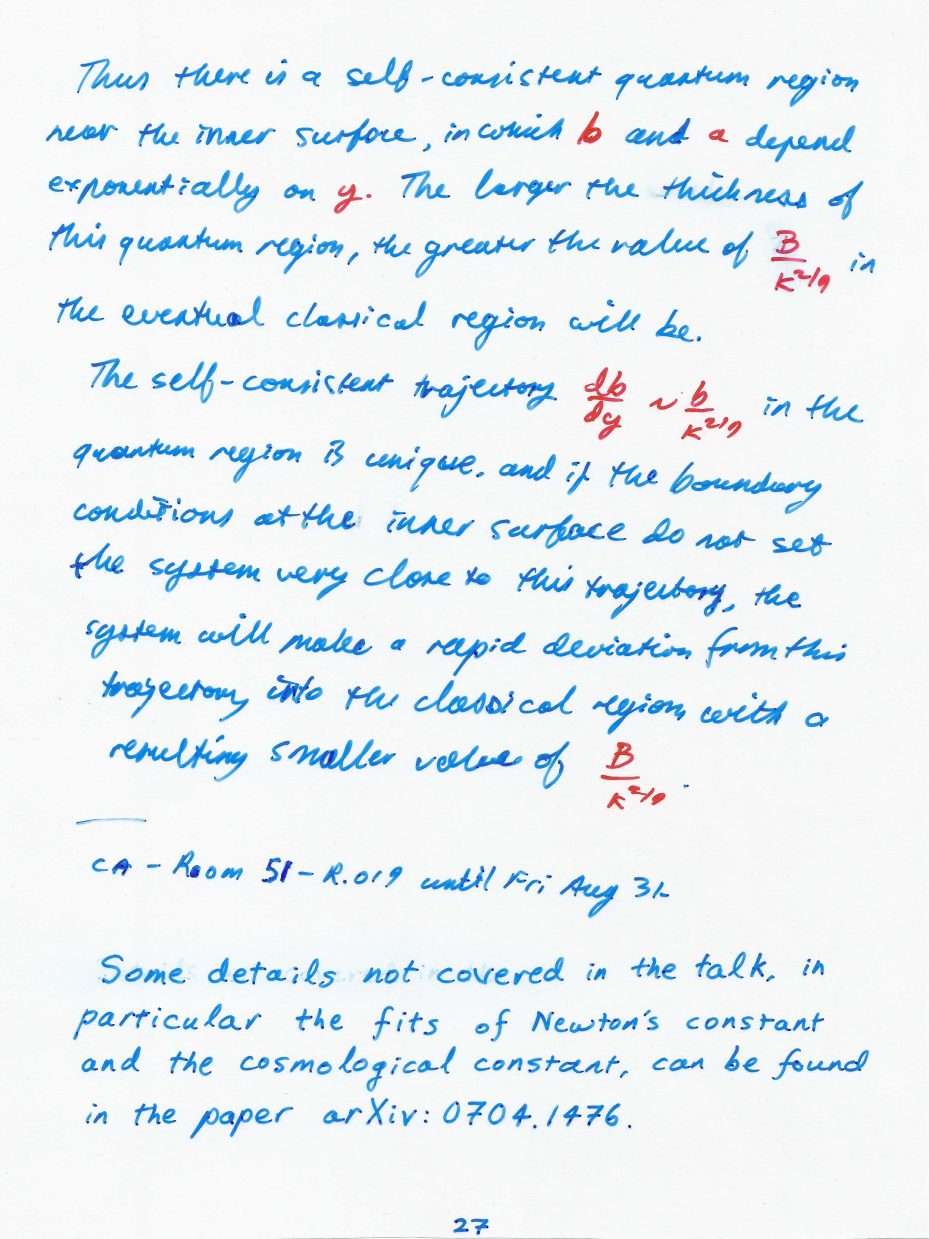 Thus there is a self-consistent quantum region
near the inner surface, in which b and a depend
exponentially on y. The larger the thickness of
this quantum region, the greater the value of B/κ^{2/9} in
the eventual classical region will be.
The self-consistent trajectory db/dy ~ b/κ^{2/9} in the
quantum region is unique, and if the boundary
conditions at the inner surface do not set
the system very close to this trajectory, the
system will make a rapid deviation from this
trajectory into the classical region, with a
resulting smaller value of B/κ^{2/9}.
CA - Room 51-R.019 until Fri Aug 31
Some details not covered in the talk, in
particular the fits of Newton's constant
and the cosmological constant, can be found
in the paper arXiv: 0704.1476.
27